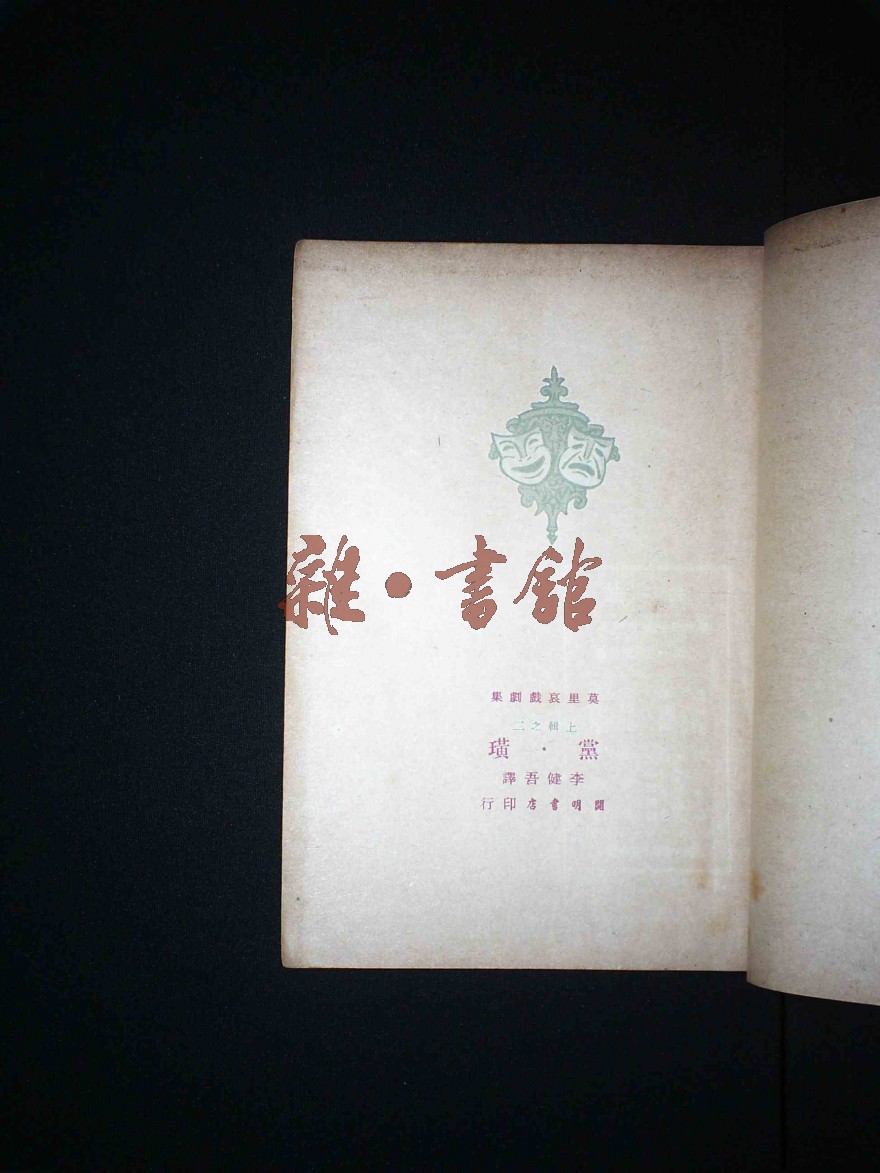 雜·書館
莫里哀戲劇集
上輯之二
黨·璜
李健吾譯
開明書店印行